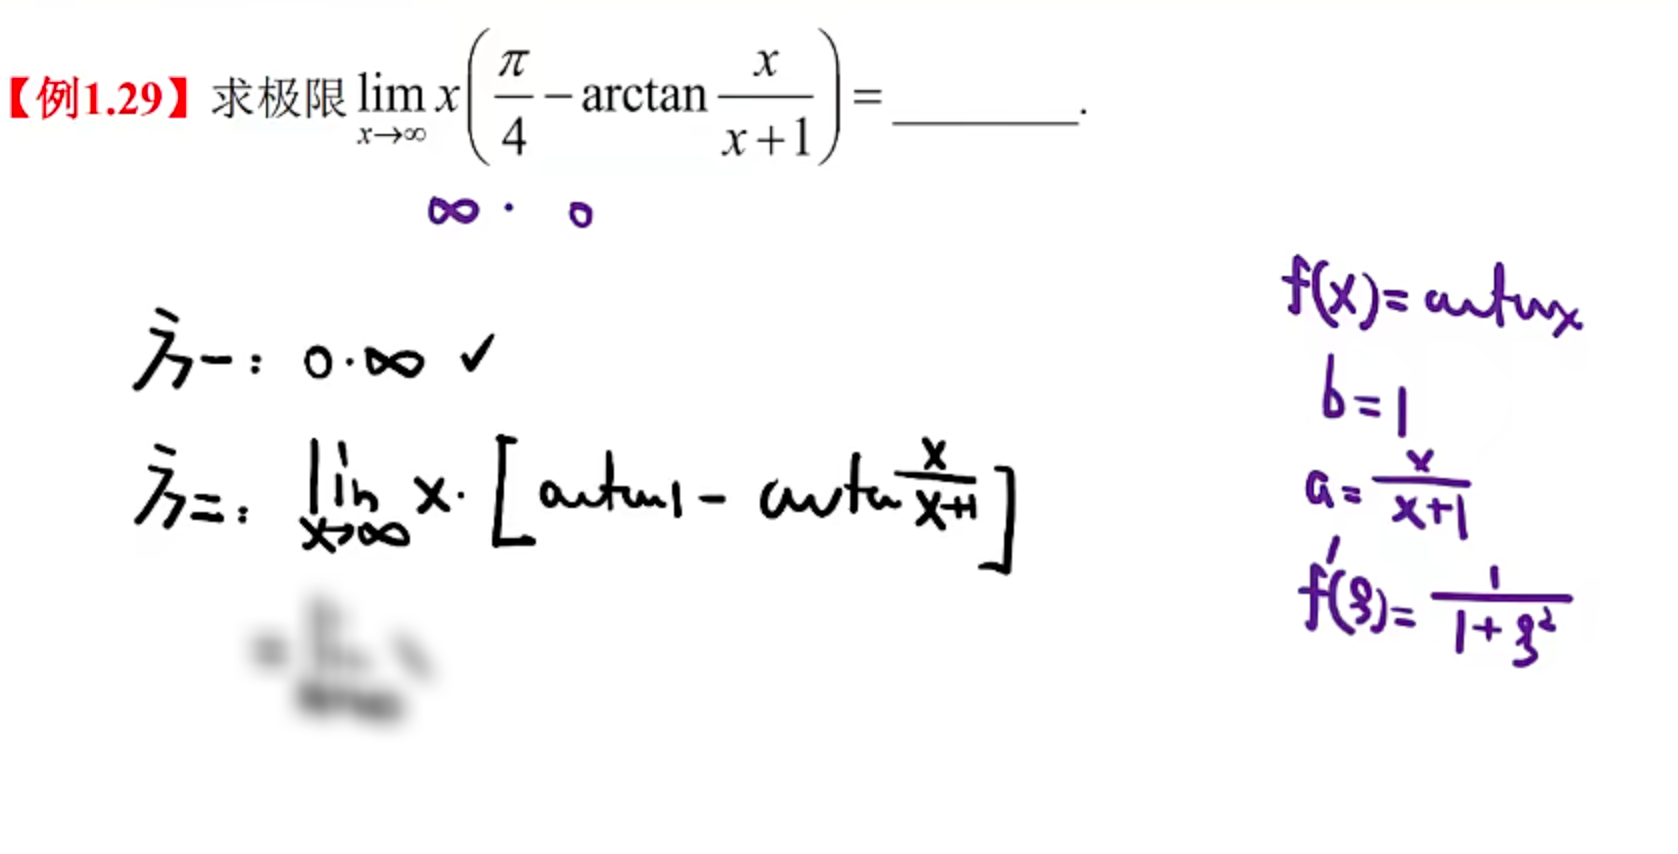 【例1.29】求极限 lim x→∞ x(π/4 − arctan x/(x+1)) = ________.
∞ · 0
方一: 0·∞ ✓
方二: lim x→∞ x·[arctan1 − arctan x/(x+1)]
f(x)= arctanx
b=1
a= x/(x+1)
f'(ξ)= 1/(1+ξ²)